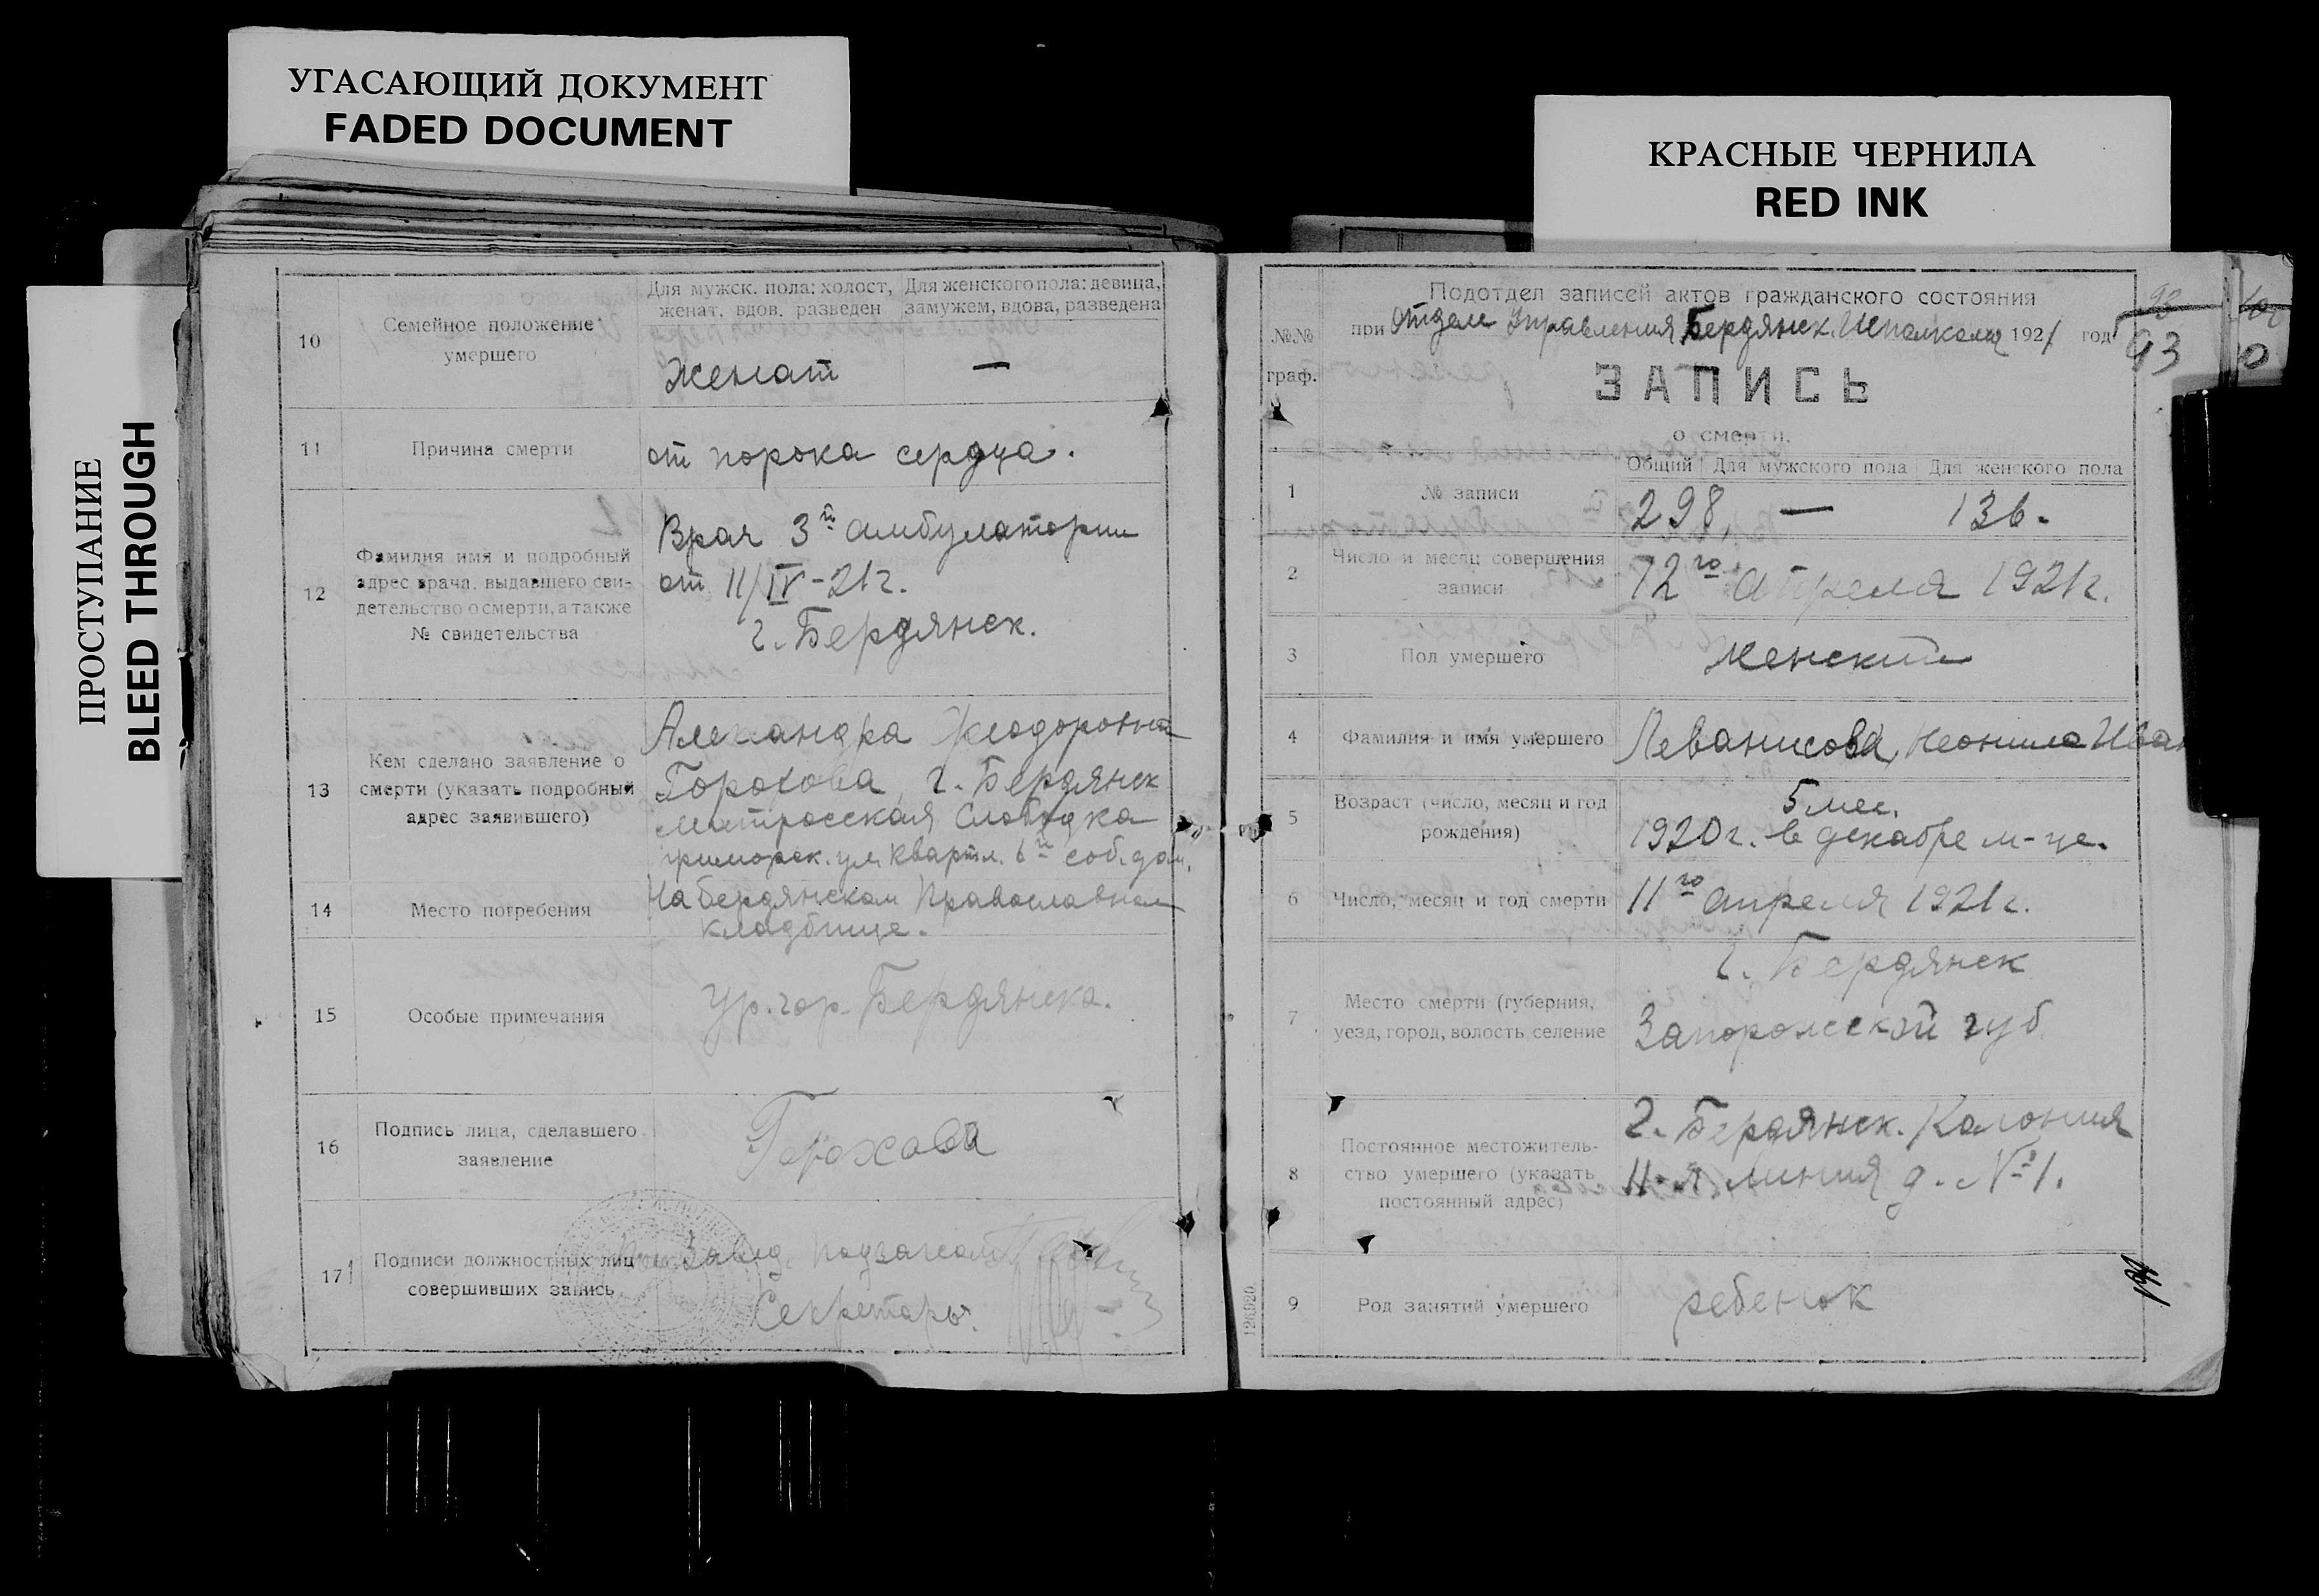 УГАСАЮЩИЙ ДОКУМЕНТ
FADED DOCUMENT
КРАСНЫЕ ЧЕРНИЛА
RED INK
ПРОСТУПАНИЕ
BLEED THROUGH
10
Семейное положение
умершего
Для мужск. пола: холост,
женат, вдов, разведен
Для женского пола: девица,
замужем, вдова, разведена
Женат —
11
Причина смерти
от порока сердца.
12
Фамилия имя и подробный
адрес врача, выдавшего сви-
детельство о смерти, а также
№ свидетельства
Врач 3й амбулатории
от 11/IV-21г.
г. Бердянск.
13
Кем сделано заявление о
смерти (указать подробный
адрес заявившего)
Александра Феодоровна
Горохова, г. Бердянск
Матросская Слободка
приморск. ул. Квартл. 6й соб. дом.
14
Место погребения
На Бердянском Православном
кладбище.
15
Особые примечания
Ур. гор. Бердянска.
16
Подпись лица, сделавшего
заявление
Горохова
17
Подписи должностных лиц
совершивших запись
Завед. подзагсом
Секретарь.
№№
граф.
Подотдел записей актов гражданского состояния
при Отделе Управления Бердянск. Исполкома 1921 год
93
ЗАПИСЬ
о смерти.
1
№ записи
Общий Для мужского пола Для женского пола
298, — 136.
2
Число и месяц совершения
записи
12го апреля 1921г.
3
Пол умершего
Женский
4
Фамилия и имя умершего
Леванисова, Неонила Иван
5
Возраст (число, месяц и год
рождения)
5 мес.
1920г. в декабре м-це.
6
Число, месяц и год смерти
11го апреля 1921г.
7
Место смерти (губерния,
уезд, город, волость селение
г. Бердянск
Запорожской губ.
8
Постоянное местожитель-
ство умершего (указать
постоянный адрес)
г. Бердянск. Колония
11-я линия д. № 1.
9
Род занятий умершего
ребенок
126920